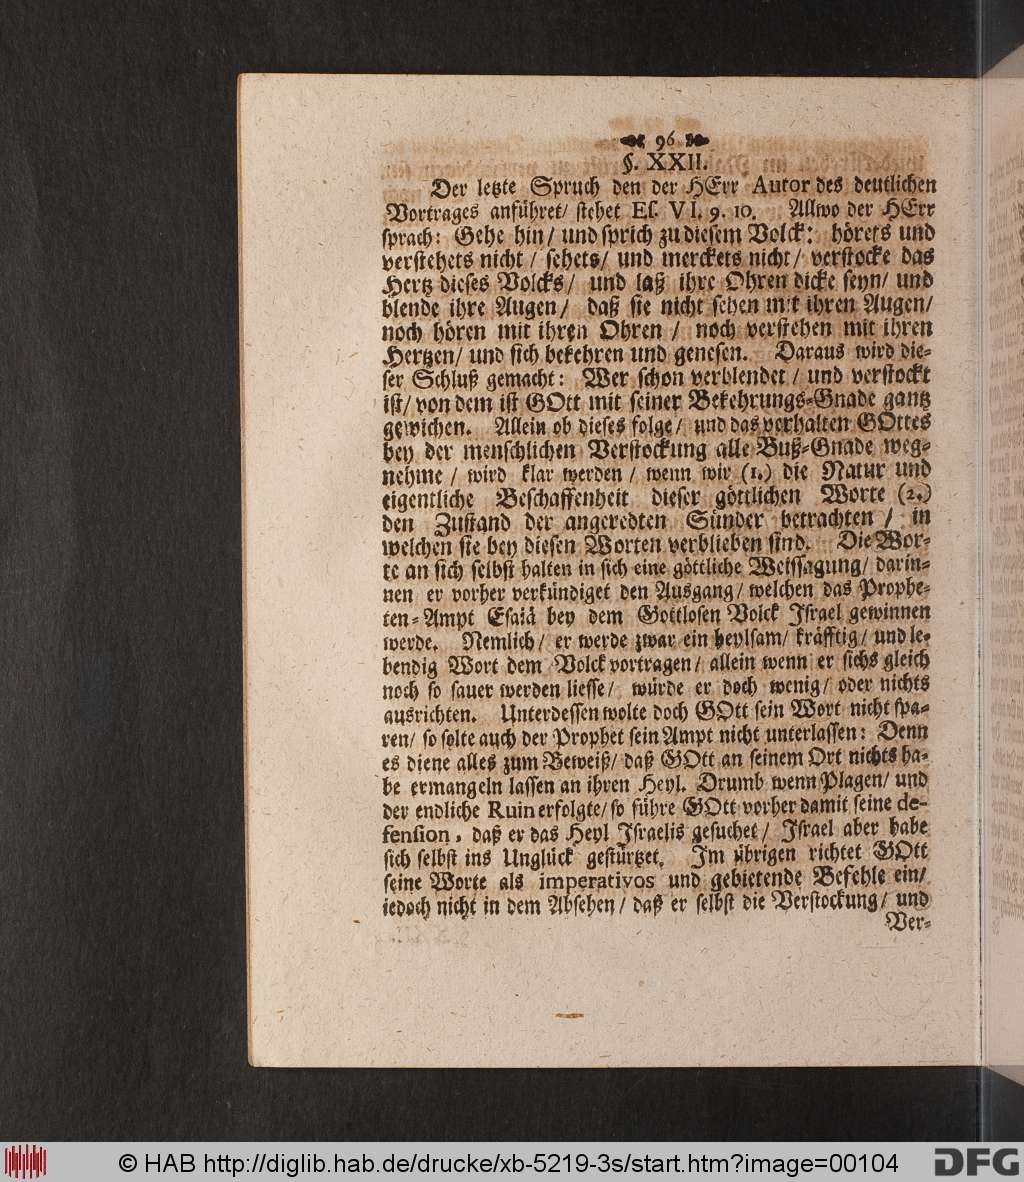 96
§. XXII.
Der letzte Spruch den der HErr Autor des deutlichen
Vortrages anführet/ stehet Es. VI. 9. 10. Allwo der HErr
sprach: Gehe hin/ und sprich zu diesem Volck: hörets und
verstehets nicht/ sehets/ und merckets nicht/ verstocke das
Hertz dieses Volcks/ und laß ihre Ohren dicke seyn/ und
blende ihre Augen/ daß sie nicht sehen mit ihren Augen/
noch hören mit ihren Ohren/ noch verstehen mit ihren
Hertzen/ und sich bekehren und genesen. Daraus wird die-
ser Schluß gemacht: Wer schon verblendet/ und verstockt
ist/ von dem ist GOtt mit seiner Bekehrungs-Gnade gantz
gewichen. Allein ob dieses folge/ und das verhalten GOttes
bey der menschlichen Verstockung alle Buß-Gnade weg-
nehme/ wird klar werden/ wenn wir (1.) die Natur und
eigentliche Beschaffenheit dieser göttlichen Worte (2.)
den Zustand der angeredten Sünder betrachten/ in
welchen sie bey diesen Worten verblieben sind. Die Wor-
te an sich selbst halten in sich eine göttliche Weissagung/ darin-
nen er vorher verkündiget den Ausgang/ welchen das Prophe-
ten-Ampt Esaiä bey dem Gottlosen Volck Israel gewinnen
werde. Nemlich/ er werde zwar ein heylsam/ kräfftig/ und le-
bendig Wort dem Volck vortragen/ allein wenn er sichs gleich
noch so sauer werden liesse/ würde er doch wenig/ oder nichts
ausrichten. Unterdessen wolte doch GOtt sein Wort nicht spa-
ren/ so solte auch der Prophet sein Ampt nicht unterlassen: Denn
es diene alles zum Beweiß/ daß GOtt an seinem Ort nichts ha-
be ermangeln lassen an ihren Heyl. Drumb wenn Plagen/ und
der endliche Ruin erfolgte/ so führe GOtt vorher damit seine de-
fension, daß er das Heyl Israelis gesuchet/ Israel aber habe
sich selbst ins Unglück gestürtzet. Im übrigen richtet GOtt
seine Worte als imperativos und gebietende Befehle ein/
iedoch nicht in dem Absehen/ daß er selbst die Verstockung/ und
Ver-
© HAB http://diglib.hab.de/drucke/xb-5219-3s/start.htm?image=00104
DFG